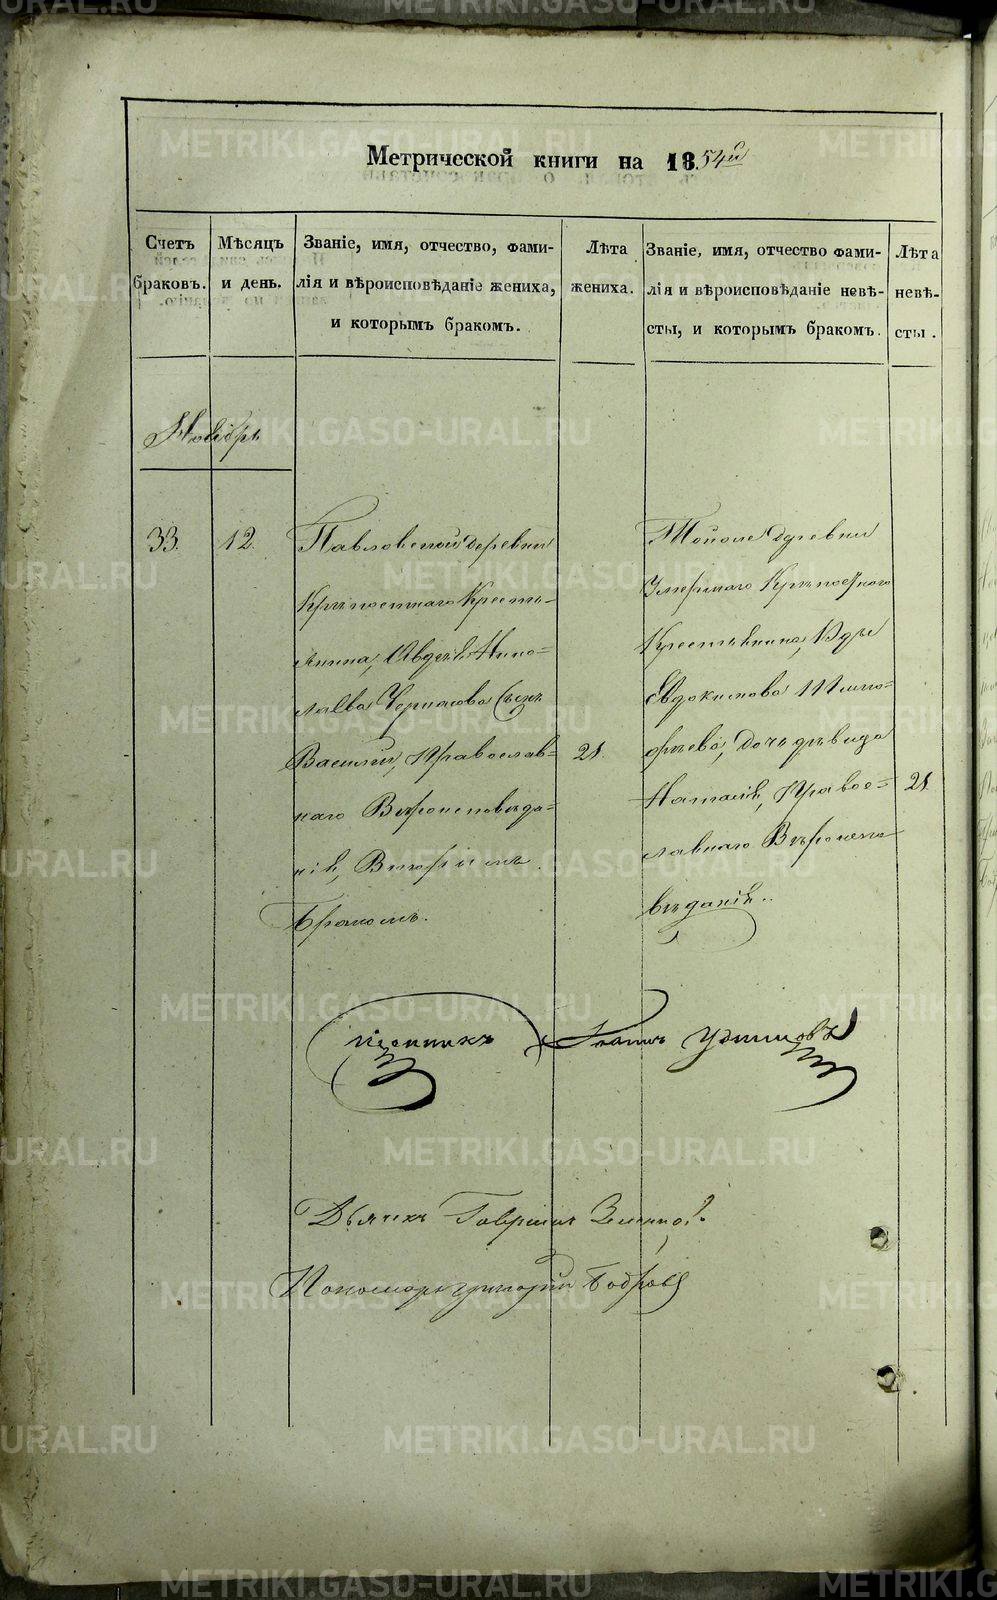 Метрической книги на 1854й
Счетъ браковъ.
Мѣсяцъ и день.
Званіе, имя, отчество, фами-
лія и вѣроисповѣданіе жениха,
и которымъ бракомъ.
Лѣта
жениха.
Званіе, имя, отчество фами-
лія и вѣроисповѣданіе невѣ-
сты, и которымъ бракомъ.
Лѣта
невѣ-
сты.
Ноябрь
33.
12.
Павловской деревни
Крѣпостнаго Кресть-
янина, Авдѣя Нико-
лаева Черпакова Сынъ
Василій, Православ-
наго Вѣроисповѣда-
нія, Вторымъ
Бракомъ.
21.
Тойоже Деревни
Умершаго Крѣпостного
Крестьянина,
Евдокимова
Дочь дѣвица
Наталія, Правос-
лавнаго Вѣроиспо-
вѣданія..
21
Священникъ Іоаннъ Удинцовъ
Дьячекъ Гавріилъ
Пономарь Григорій Бобровъ
METRIKI.GASO-URAL.RU